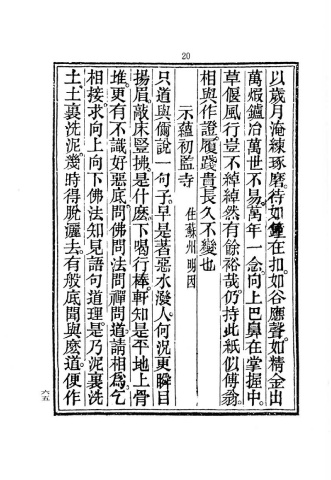 20
以歲月淹練琢磨。待如鐘在扣。如谷應聲。如精金出
萬煆鑪冶萬世不易。萬年一念。向上巴鼻在掌握中。
草偃風行。豈不綽綽然有餘裕哉。仍持此紙似傅翁。
相與作證。履踐貴長久不變也
示蘊初監寺
住蘇州明因
只道與爾說一句子。早是著惡水潑人。何況更瞬目
揚眉。敲床豎拂。是什麼。下喝行棒。軒知是平地上骨
堆。更有不識好惡底。問佛問法。問禪問道。請相為乞
相接。求向上向下佛法知見語句道理。是乃泥裏洗
土。土裏洗泥。幾時得脫灑去。有般底聞與麼道。便作
六五